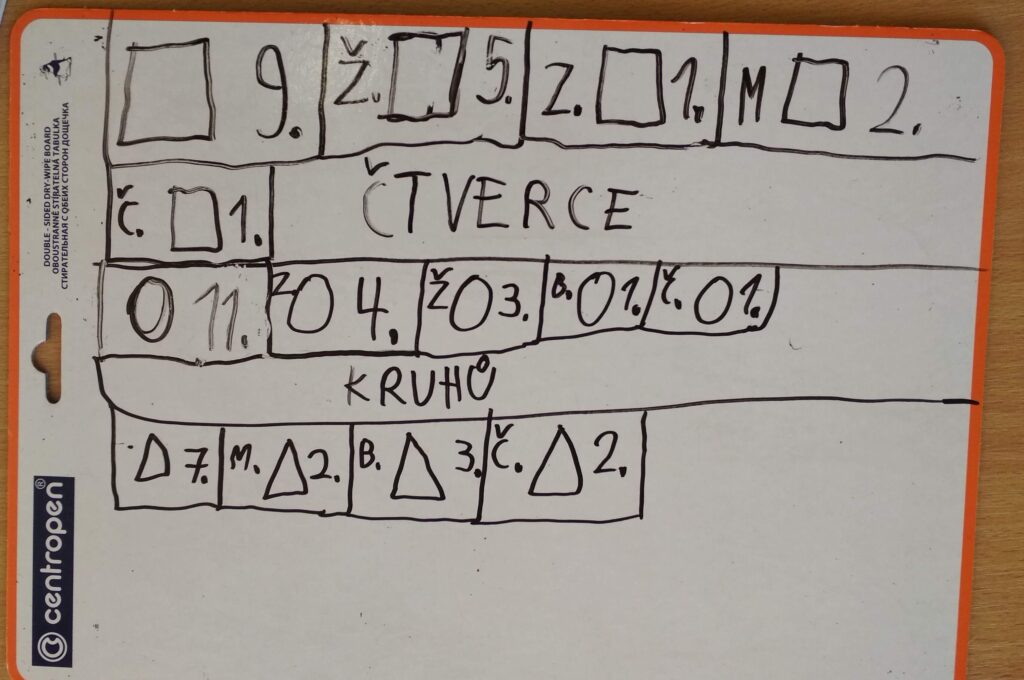 □ 9. Ž. □ 5. Z. □ 1. M □ 2.
Č. □ 1. ČTVERCE
O 11. Z O 4. Ž O 3. B. O 1. Č. O 1.
KRUHŮ
△ 7. M. △ 2. B. △ 3. Č. △ 2.
DOUBLE - SIDED DRY-WIPE BOARD
OBOUSTRANNĚ STÍRATELNÁ TABULKA
СТИРАТЕЛЬНАЯ С ОБЕИХ СТОРОН ДОЩЕЧКА
centropen®